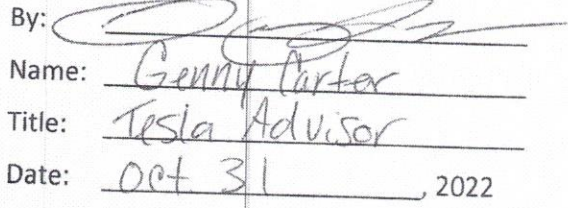 By:
Name: Genny Carter
Title: Tesla Advisor
Date: Oct 31, 2022